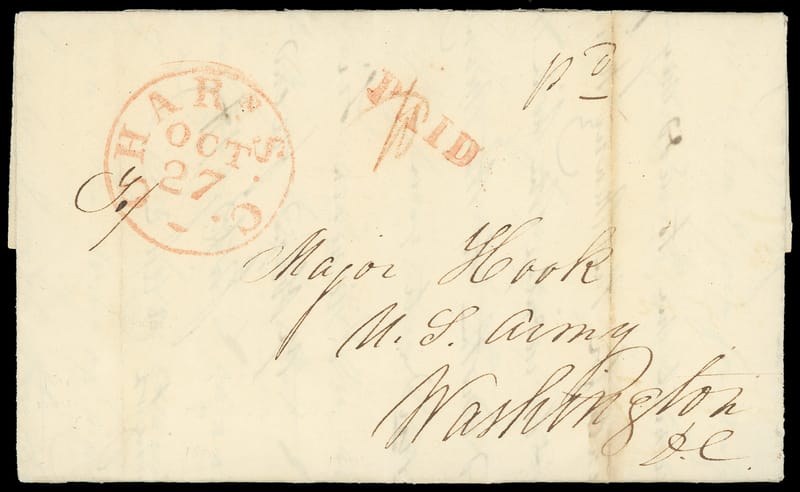 CHARˢ S.C.
OCT.
27
PAID
pᵈ
Major Hook
U. S. Army
Washington
D.C.